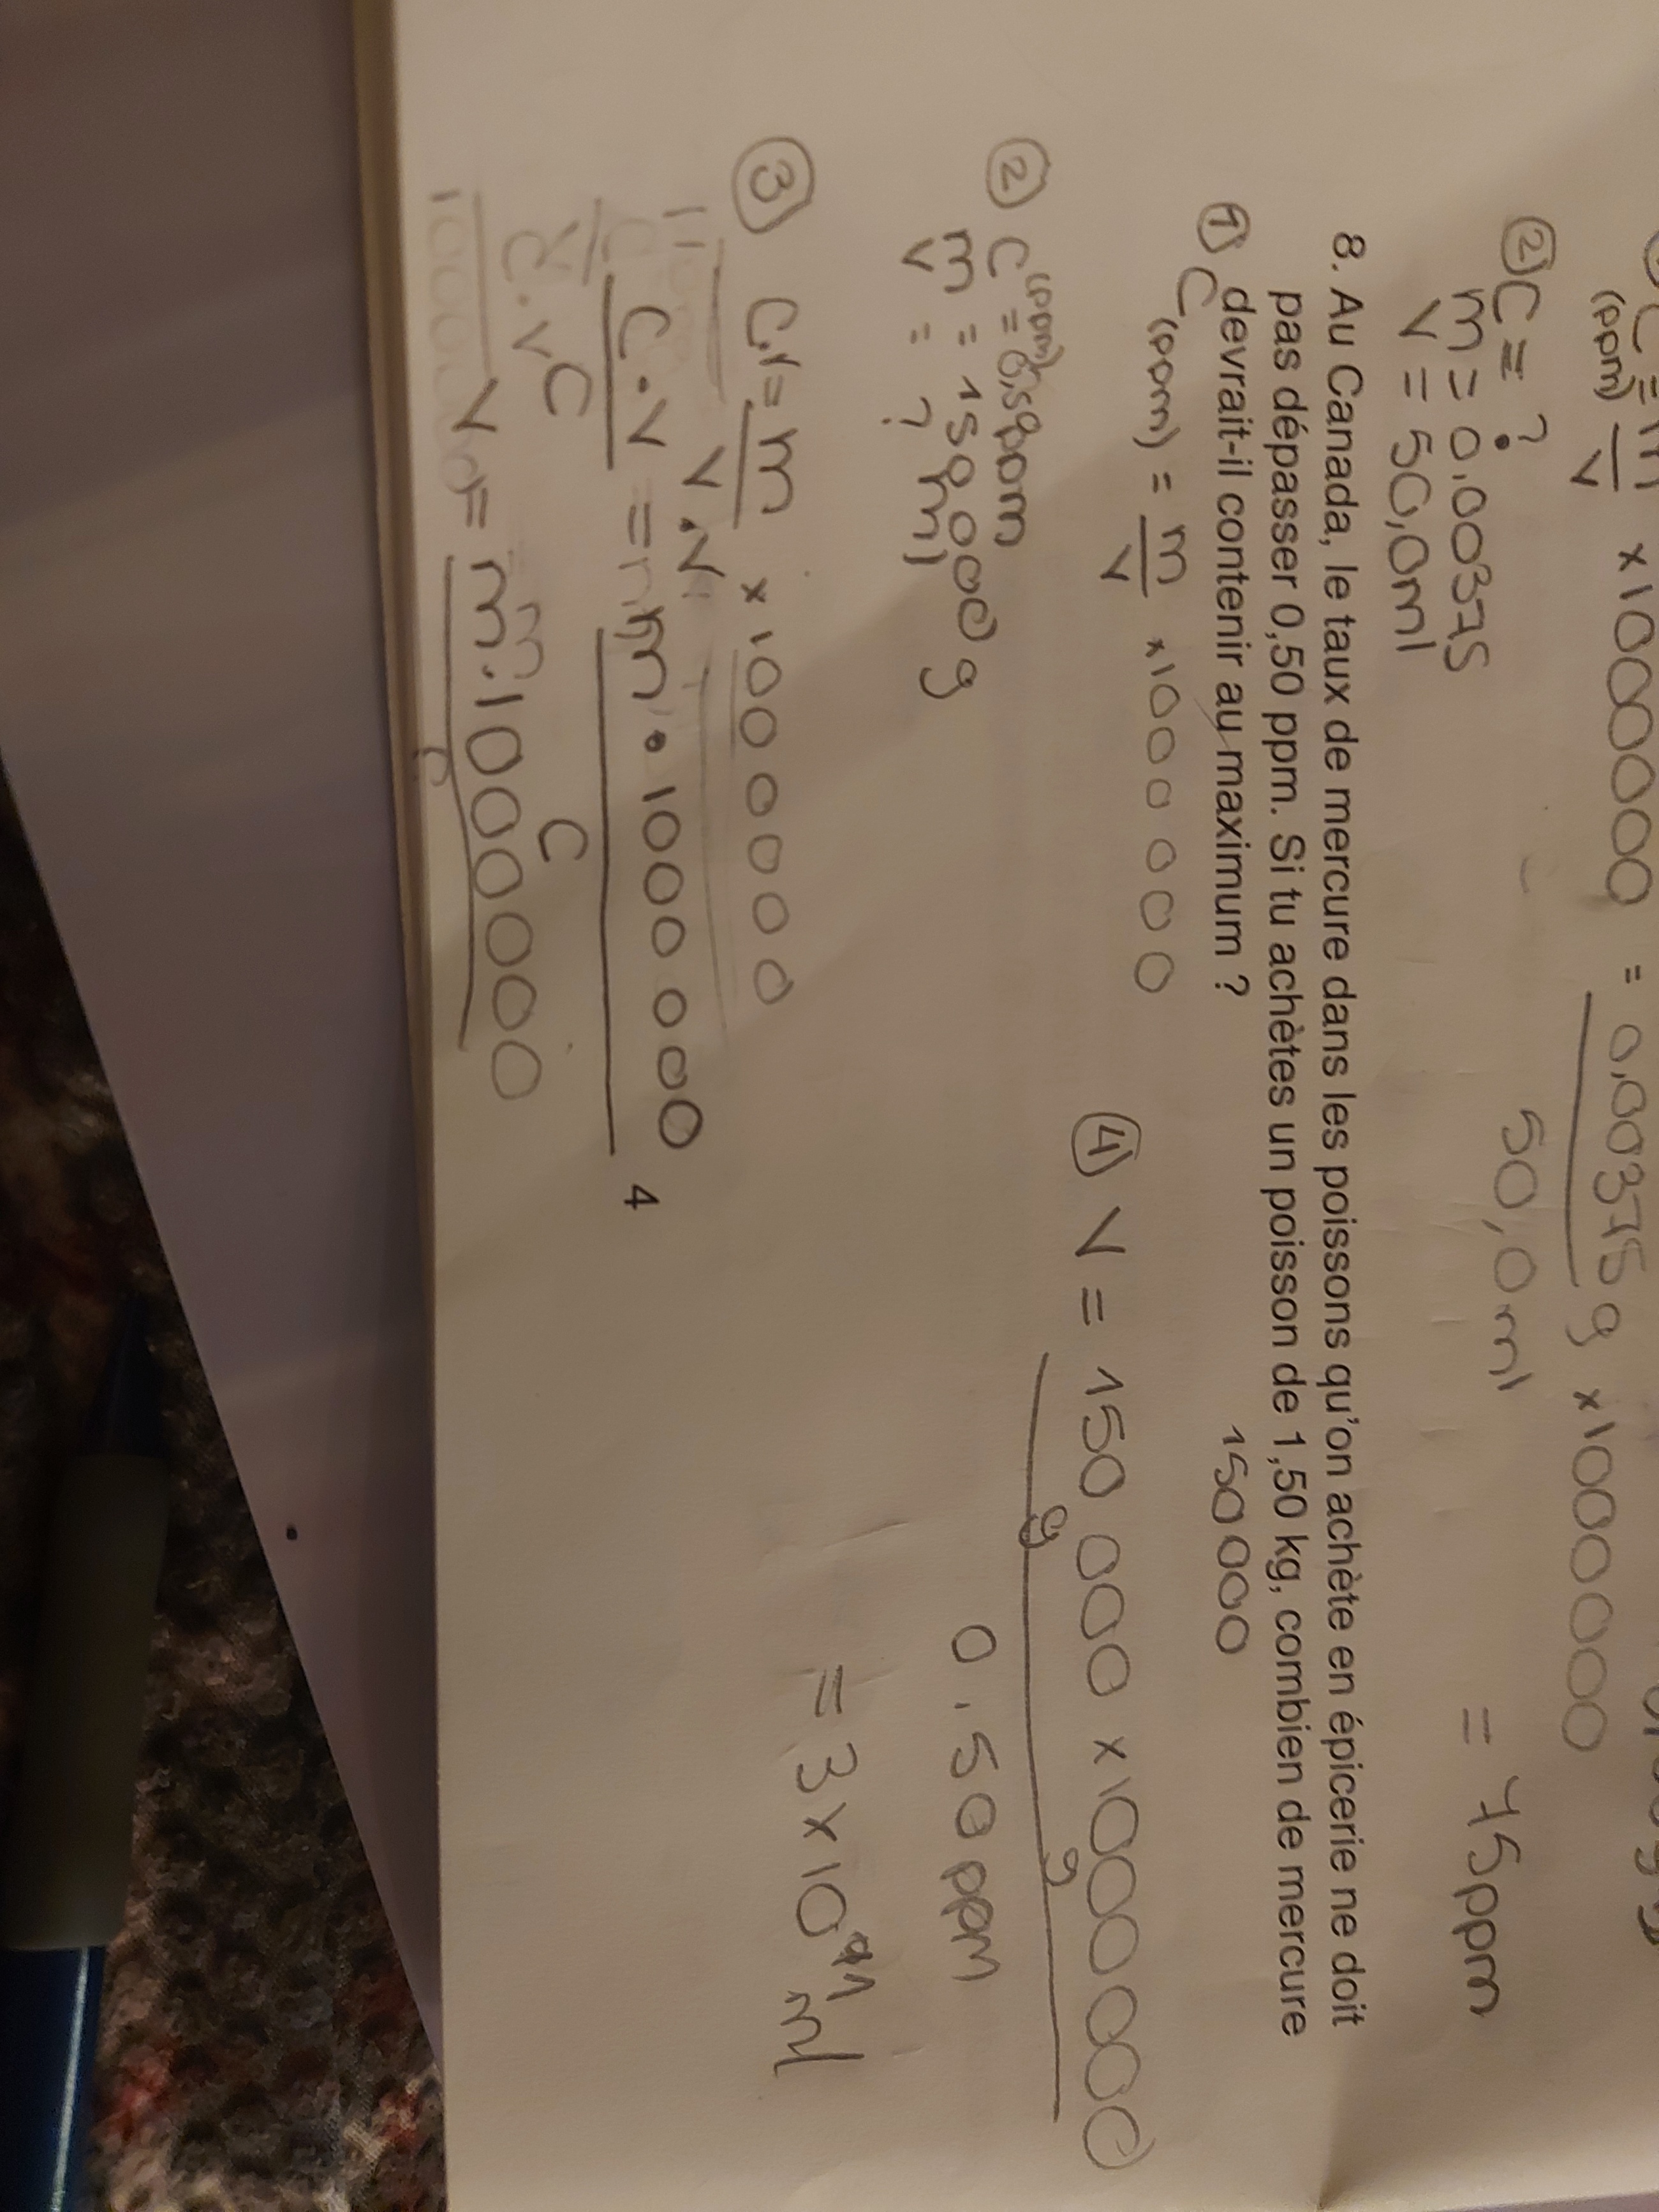 C = m x1000000 = 0,00375 g x1000000
(ppm) v 50,0ml = 75ppm
② C = ?
m = 0,00375
v = 50,0ml
8. Au Canada, le taux de mercure dans les poissons qu'on achète en épicerie ne doit
pas dépasser 0,50 ppm. Si tu achètes un poisson de 1,50 kg, combien de mercure
devrait-il contenir au maximum ?
150000
① C(ppm) = m x1000 000
v
② C(ppm) = 0,50ppm
m = 150 000 g
v = ? ml
③ C.v = m x 1000000
v .v
C.v = m . 1000 000
C C
v = m.1000000
C
④ v = 150 000 g x1000000 g
0.50 ppm
= 3 x 10 ml
4